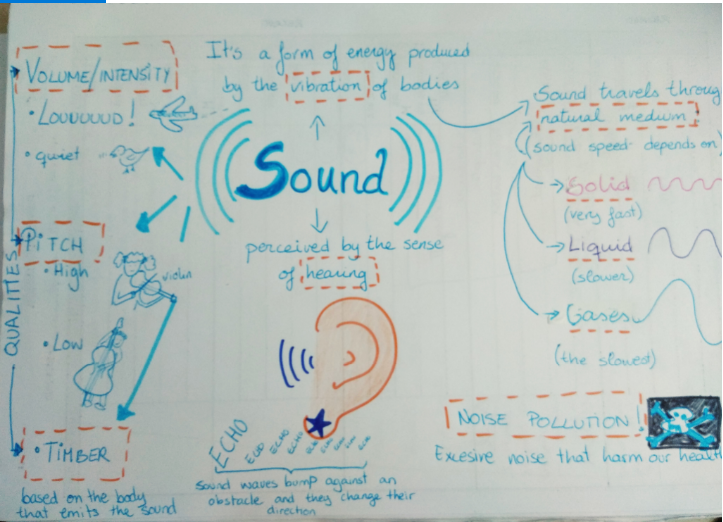 VOLUME/INTENSITY
• LOUUUUUD!
• quiet
QUALITIES
PITCH
• High
violin
• Low
• TIMBER
based on the body
that emits the sound
It's a form of energy produced
by the vibration of bodies
Sound
perceived by the sense
of hearing
ECHO
ECHO
ECHO
Sound waves bump against an
obstacle and they change their
direction
Sound travels throug
natural medium
(sound speed depends on)
Solid
(very fast)
Liquid
(slower)
Gases
(the slowed)
NOISE POLLUTION!
Excesive noise that harm our health